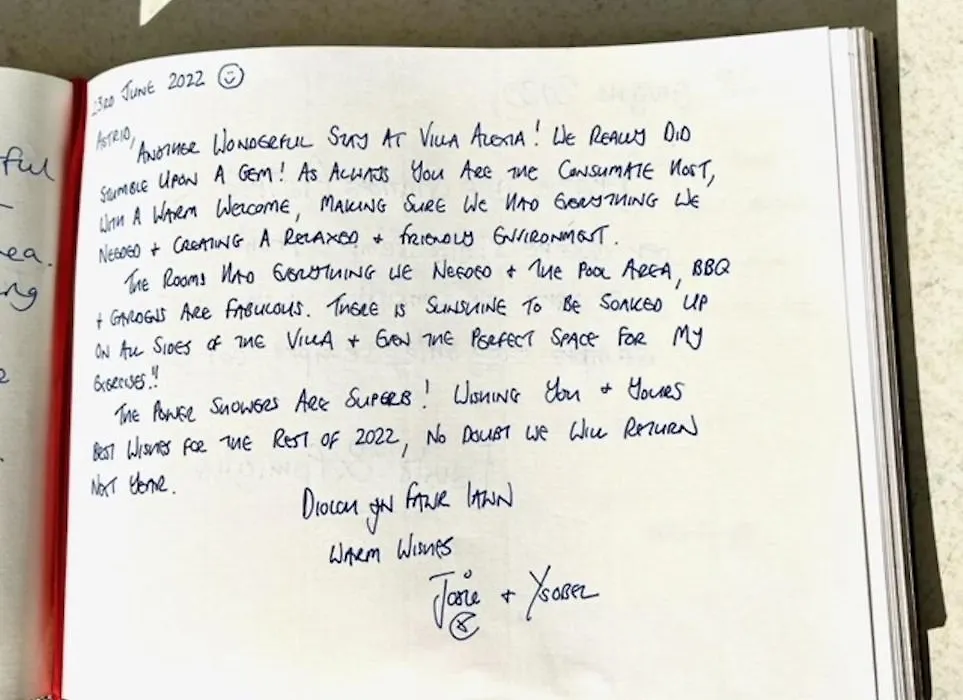 ful
ea.
ng
23RD JUNE 2022
ASTRID,
ANOTHER WONDERFUL STAY AT VILLA ALEXIA! WE REALLY DID
STUMBLE UPON A GEM! AS ALWAYS YOU ARE THE CONSUMATE HOST,
WITH A WARM WELCOME, MAKING SURE WE HAD EVERYTHING WE
NEEDED + CREATING A RELAXED + FRIENDLY ENVIRONMENT.
THE ROOMS HAD EVERYTHING WE NEEDED + THE POOL AREA, BBQ
+ GARDENS ARE FABULOUS. THERE IS SUNSHINE TO BE SOAKED UP
ON ALL SIDES OF THE VILLA + EVEN THE PERFECT SPACE FOR MY
EXERCISES!!
THE POWER SHOWERS ARE SUPERB! WISHING YOU + YOURS
BEST WISHES FOR THE REST OF 2022, NO DOUBT WE WILL RETURN
NEXT YEAR.
DIOLCH YN FAWR IAWN
WARM WISHES
Josie + YSOBEL
X